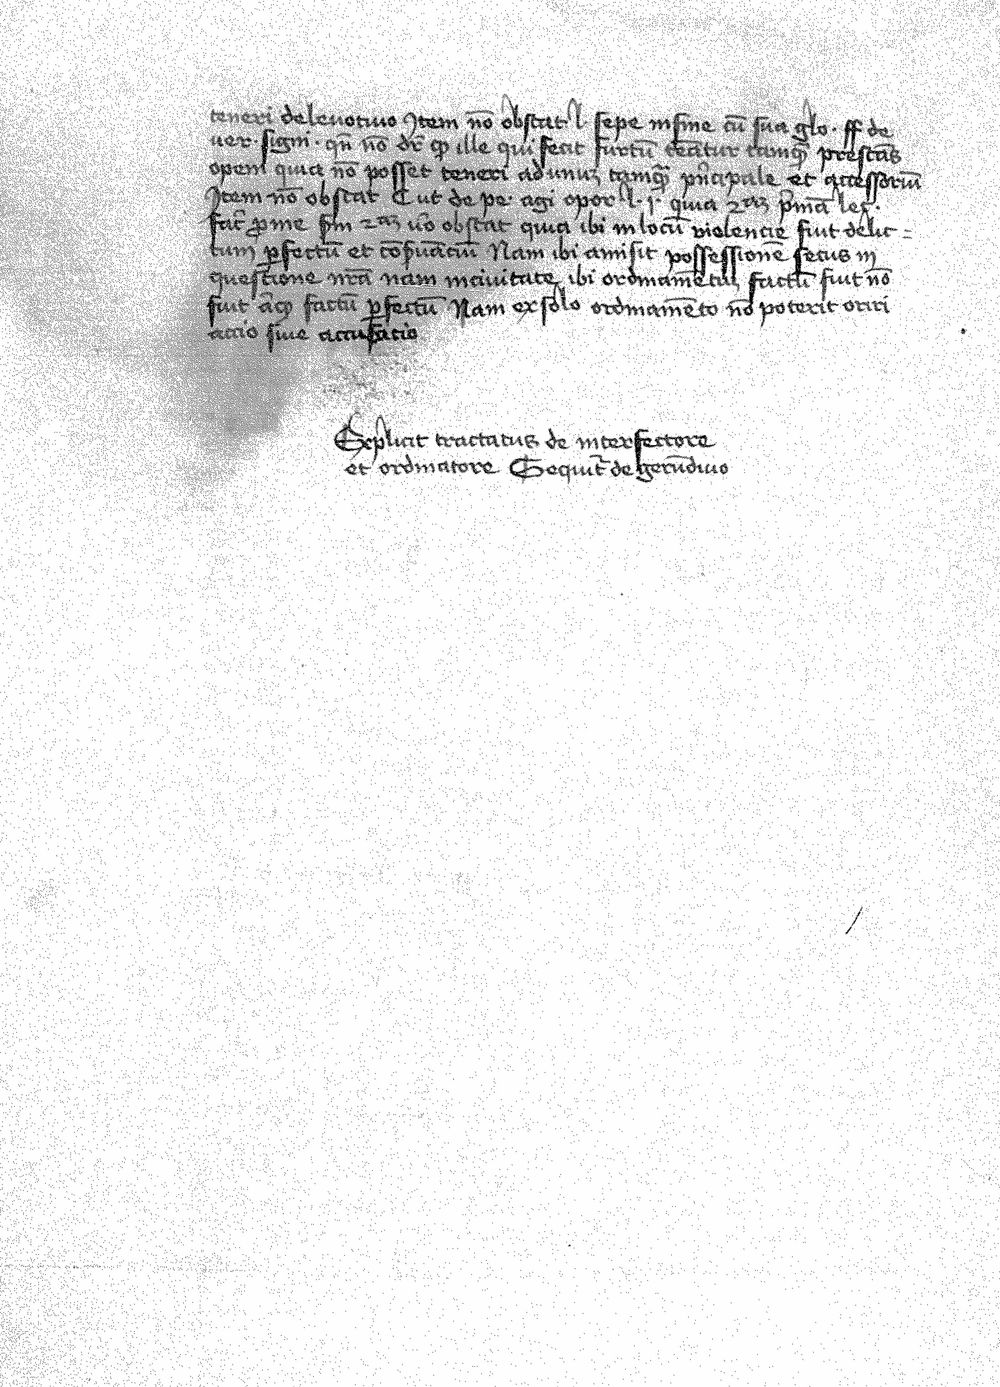 teneri de levotivo Item nō obstat l. sepe in fine cū sua glo. ff de
ver. signi. qn̄ nō dr̄ ꝙ ille qui fecit furtū teat̄ur tamqꝫ prestās
opem quia nō posset teneri ad unuꝫ tamqꝫ pn̄cipale et accessoriū
Item nō obstat C ut de pe. agi opor. l. i. quia pīnā
fac̄ p̄me vō obstat quia ibi in locū violencie fuit delic=
tum ꝑfectū et Nam ibi amisit possessionē secus in
questione nr̄a nam in civitate ibi ordinamētuꝫ factū fuit nō
fuit factū ꝑfectū Nam ex solo ordinamēto nō poterit oriri
accio sive accusatio
Explicit tractatus de interfectore
et ordinatore Sequit̄ de gerūdivo